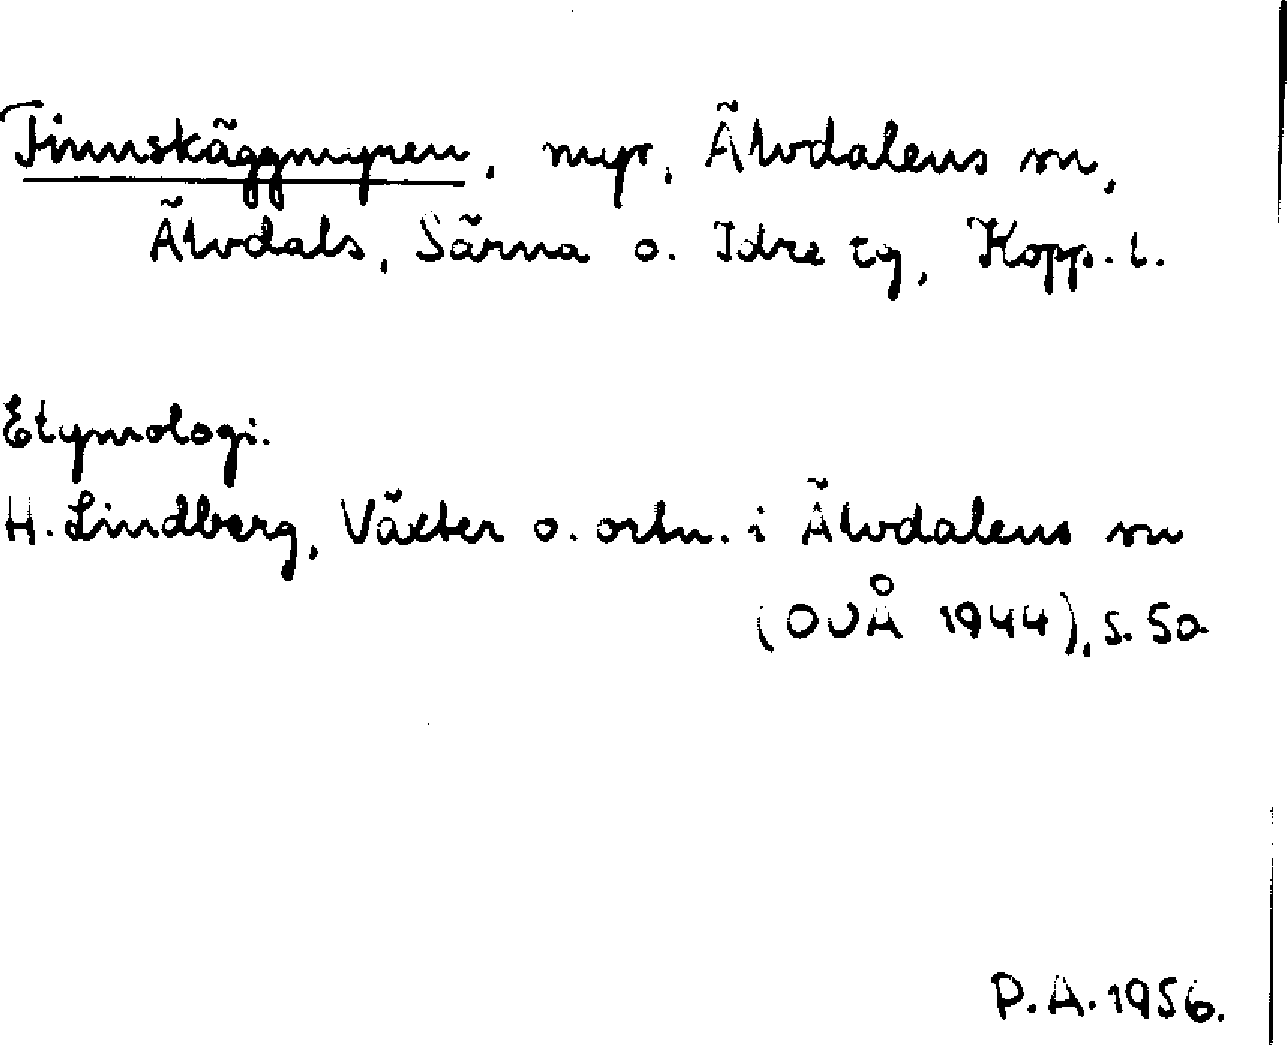 Finnskäggmyren, myr, Älvdalens sn,
Älvdals, Särna o. Idre tg, Kopp. l.
Etymologi.
H. Lindberg, Växter o. ortn. i Älvdalens sn
(OUÅ 1944), s. 50
P.A. 1956.